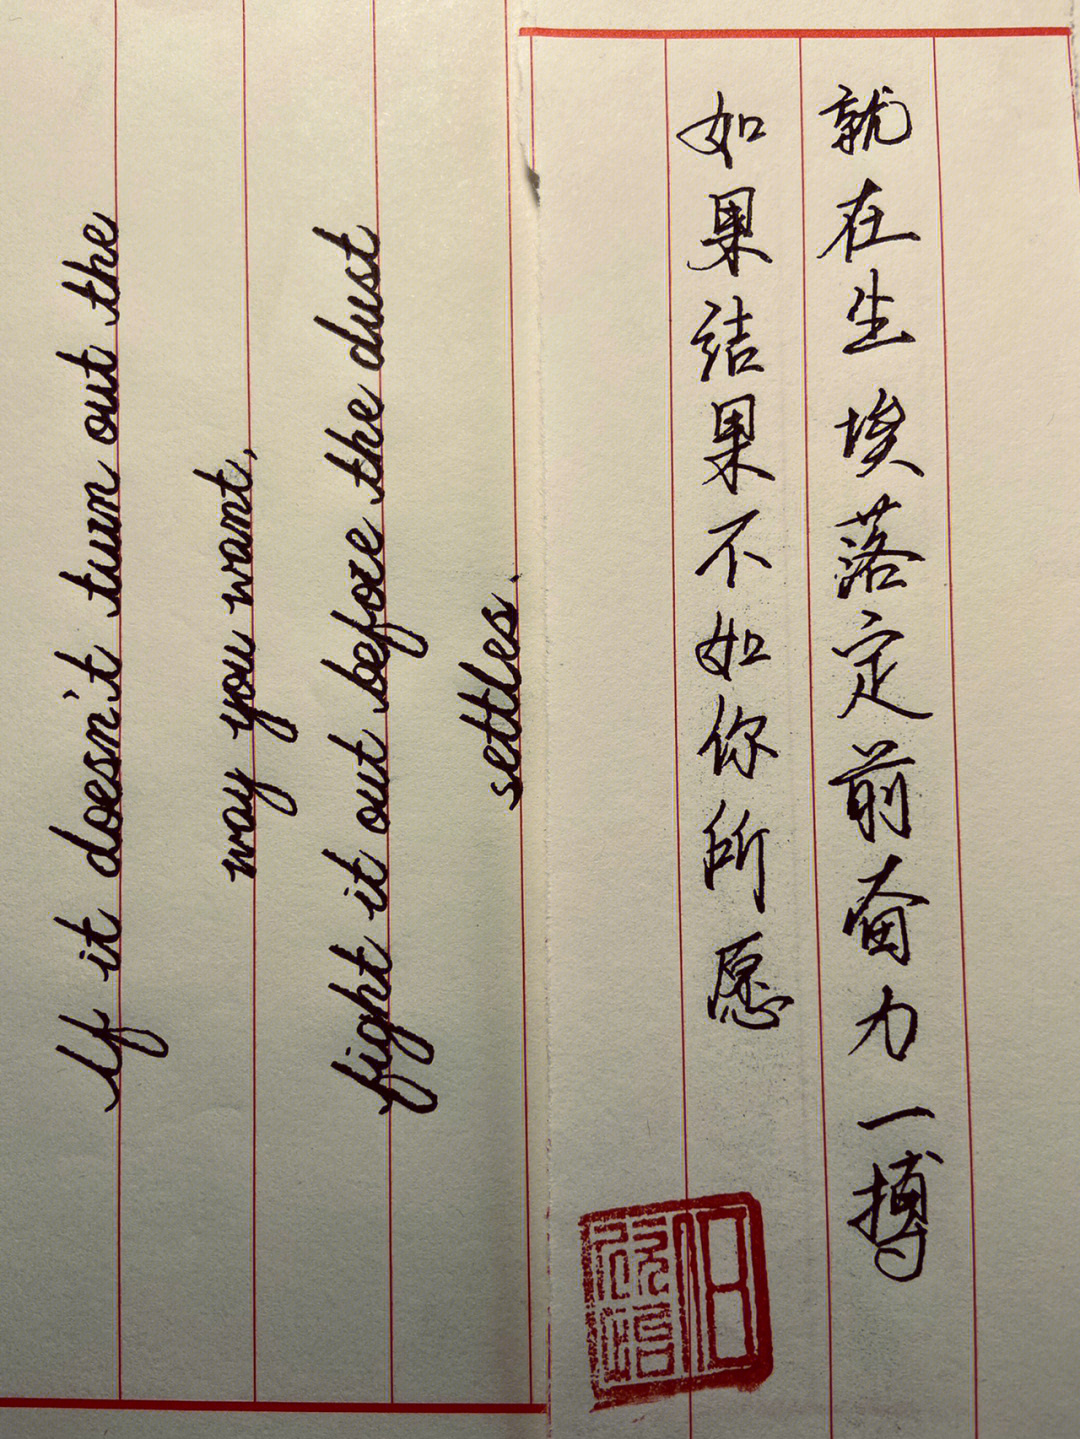 If it doesn't turn out the
way you want,
fight it out before the dust
settles.
如果结果不如你所愿
就在尘埃落定前奋力一搏